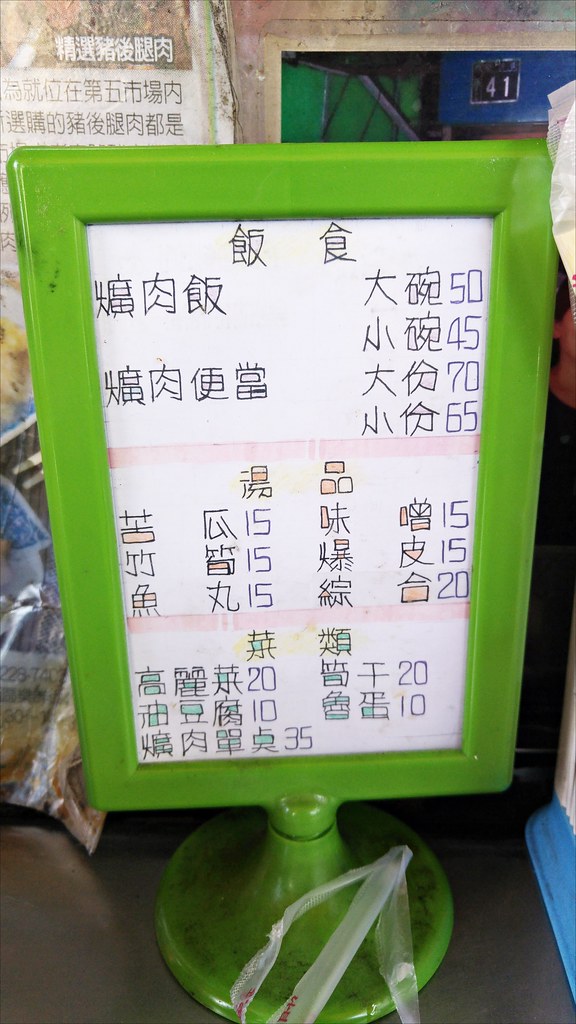 精選豬後腿肉
為就位在第五市場內
選購的豬後腿肉都是
41
飯 食
爌肉飯 大碗50
小碗45
爌肉便當 大份70
小份65
湯 品
苦 瓜15 味 噌15
竹 筍15 爆 皮15
魚 丸15 綜 合20
菜 類
高麗菜20 筍干20
油豆腐10 魯蛋10
爌肉單點35